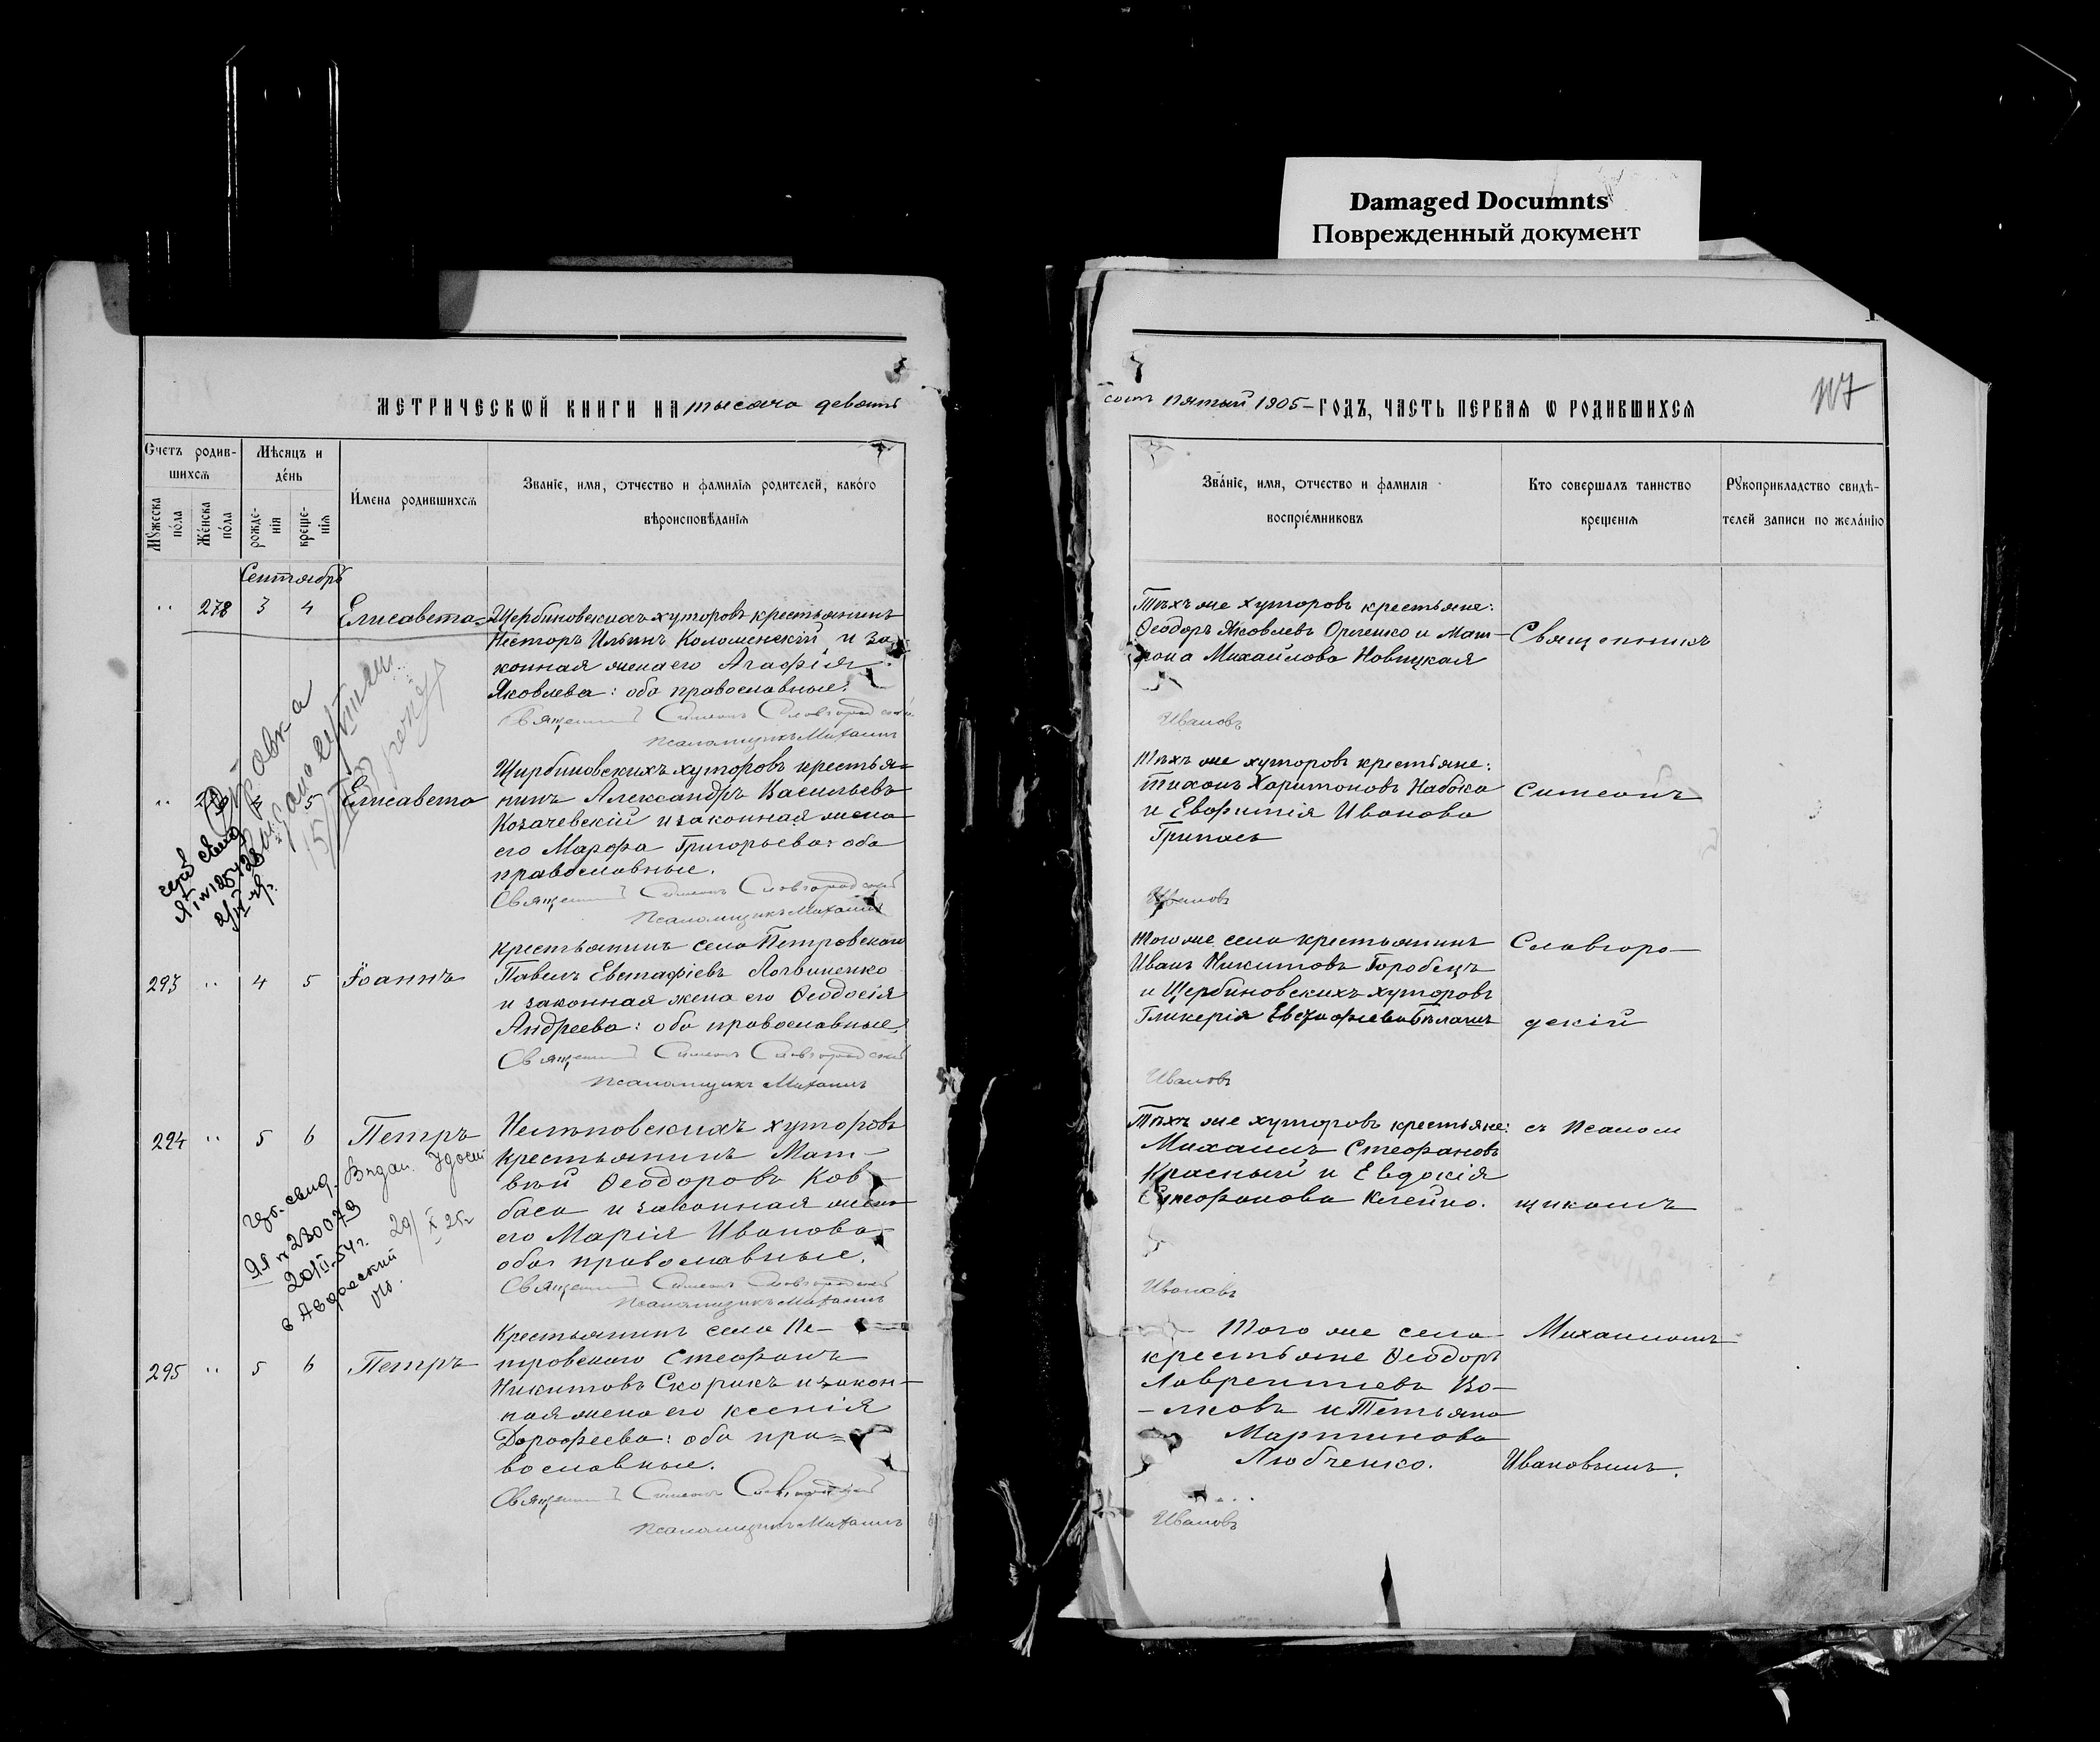 Damaged Documnts
Поврежденный документ
МЕТРИЧЕСКѠЙ КНИГИ НА тысяча девять
Счетъ родив-
шихсѧ
Мѣсяцъ и
де́нь
Мꙋжеска
по́ла
Же́нска
по́ла
рожде-
нія
креще-
нія
И́мена родившихсѧ
Званіе, имя, ѻтчество и фамилія родителей, како́го
вѣроисповѣданія
Сентябрь
278 3 4 Елисавета
Щербиновскихъ хуторовъ крестьянинъ
Несторъ Ильинъ Коломенскій и за
конная жена его Агафія
Яковлева: оба православные.
Священникъ Симеонъ Славгородскій
Псаломщикъ Михаилъ
5 Елисавета
Щербиновскихъ хуторовъ крестья=
нинъ Александръ Васильевъ
Козачевскій и законная жена
его Марфа Григорьева: оба
православные.
Священникъ Симеонъ Славгородскій
Псаломщикъ Михаилъ
справка
293 4 5 Іоаннъ
Крестьянинъ села Петровскаго
Павелъ Евстафіевъ Логвиненко
и законная жена его Ѳеодосія
Андреева: оба православные.
Священникъ Симеонъ Славгородскій
Псаломщикъ Михаилъ
294 5 6 Петръ
хуторовъ
крестьянинъ Мат-
вѣй Ѳеодоровъ Ков-
баса и законная жена
его Марія Иванова
оба православные.
Священникъ Симеонъ Славгородскій
Псаломщикъ Михаилъ
ЯЛ № 230079
20/II-54 г.
29/X 25 г.
295 5 6 Петръ
Крестьянинъ села Пе-
тровскаго Стефанъ
Никитовъ Скорикъ и закон-
ная жена его Ксенія
Дороѳеева: оба пра=
вославные.
Священникъ Симеонъ Славгородскій
Псаломщикъ Михаилъ
сотъ пятый 1905 – ГОДЪ, ЧАСТЬ ПЕРВАѦ Ѡ РОДИВШИХСѦ
Зва́ніе, имя, ѻтчество и фамилія
воспріе́мниковъ
Кто совершалъ таинство
крещенія
Рꙋкоприкладство свидѣ-
телей записи по жела́нію
Тѣхъ же хуторовъ крестьяне:
Ѳеодоръ Яковлевъ и Мат-
рона Михайлова Новицкая
Священникъ
Ивановъ
Тѣхъ же хуторовъ крестьяне:
Тихонъ Харитоновъ Набока
и Евфимія Иванова
Грипась
Симеонъ
Ивановъ
Того же села крестьянинъ
Иванъ Никитовъ Горобецъ
и Щербиновскихъ хуторовъ
Гликерія Евстафіева
Славгоро-
дскій
Ивановъ
Тѣхъ же хуторовъ крестьяне:
Михаилъ Стефановъ
Красный и Евдокія
Стефанова Клейно.
съ Псалом
щикомъ
Ивановъ
Того же села
крестьяне Ѳеодоръ
Лаврентіевъ Во-
-лковъ и Тетьяна
Мартинова
Любченко.
Михаиломъ
Ивановымъ.
Ивановъ